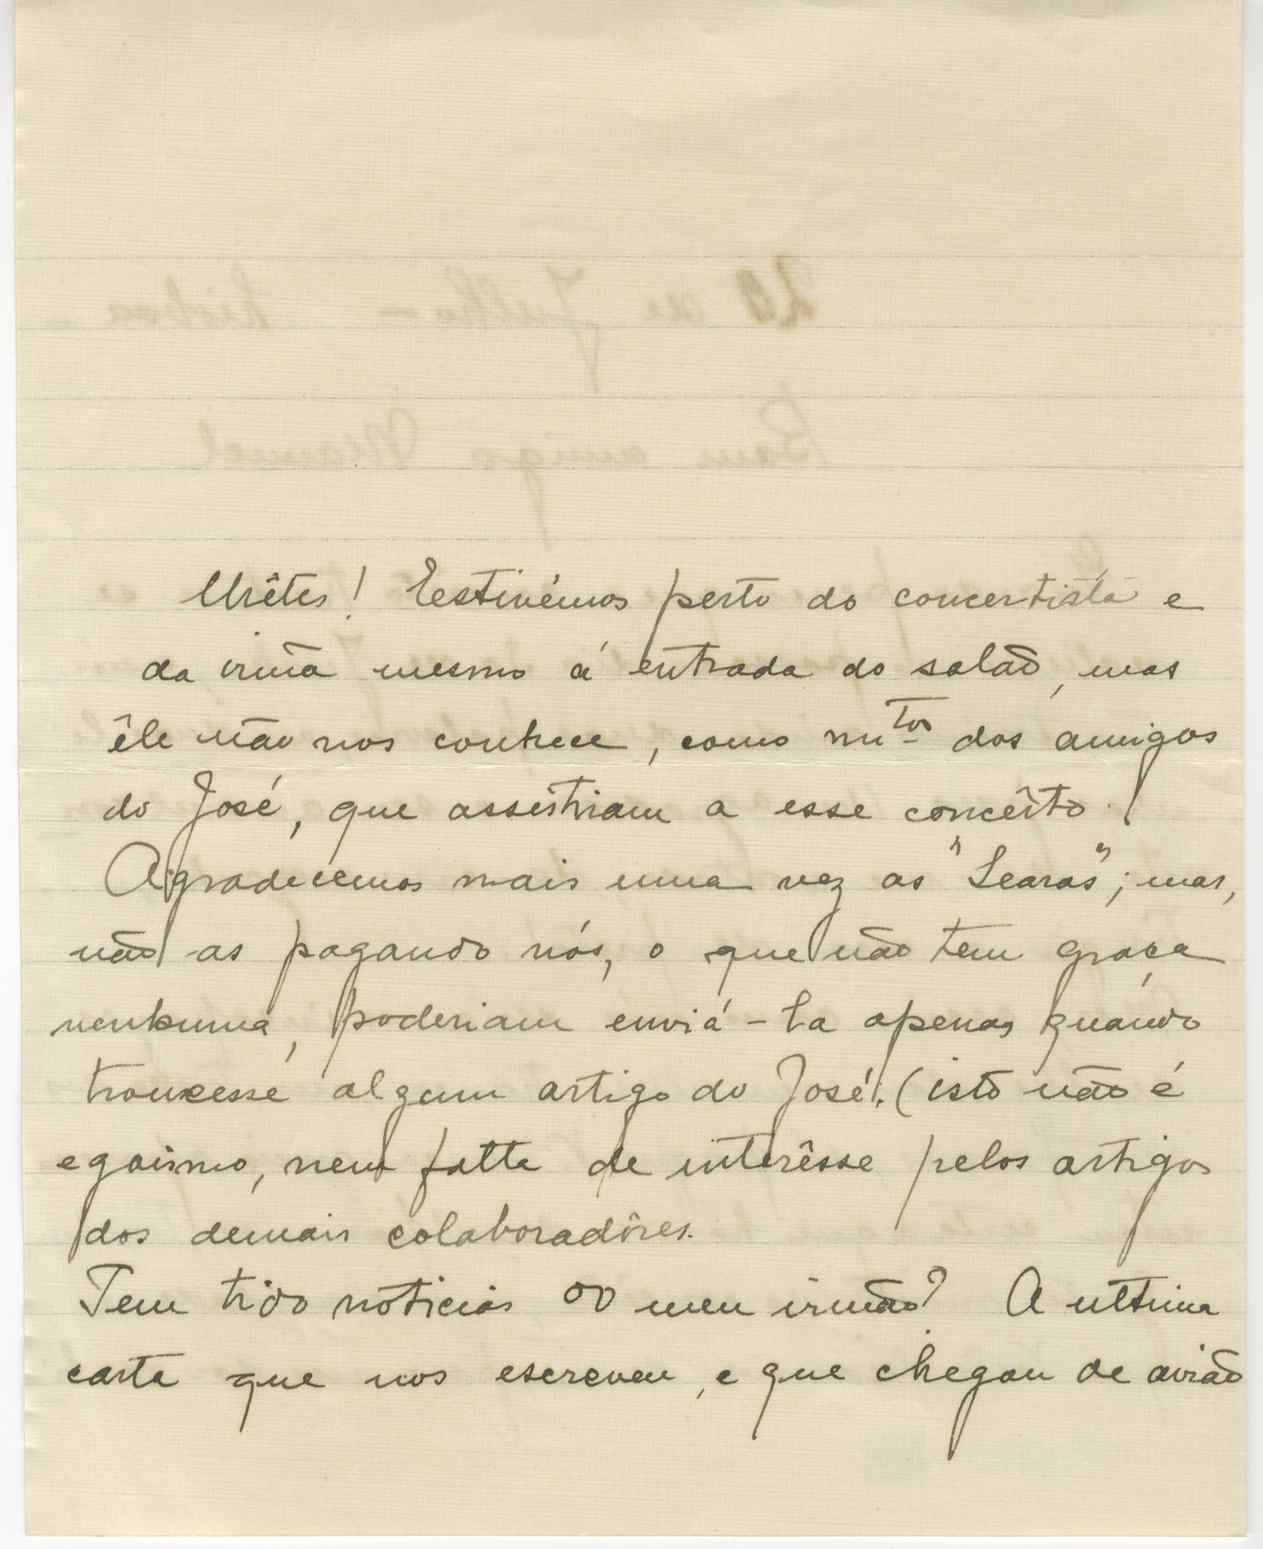 Urêtes! Eestivémos perto do concertista e
da irmã mesmo á entrada do salão, mas
êle não nos conhece, como mtos dos amigos
do José, que assistiriam a esse concêrto!
Agradecemos mais uma vez as "Searas"; mas,
não as pagando nós, o que não tem graça
nenhuma, poderiam enviá-la apenas quando
trouxesse algum artigo do José. (isto não é
egoismo, nem falta de interêsse pelos artigos
dos demais colaboradôres.
Tem tido noticias do meu irmão? A ultima
carta que nos escreveu, e que chegou de avião